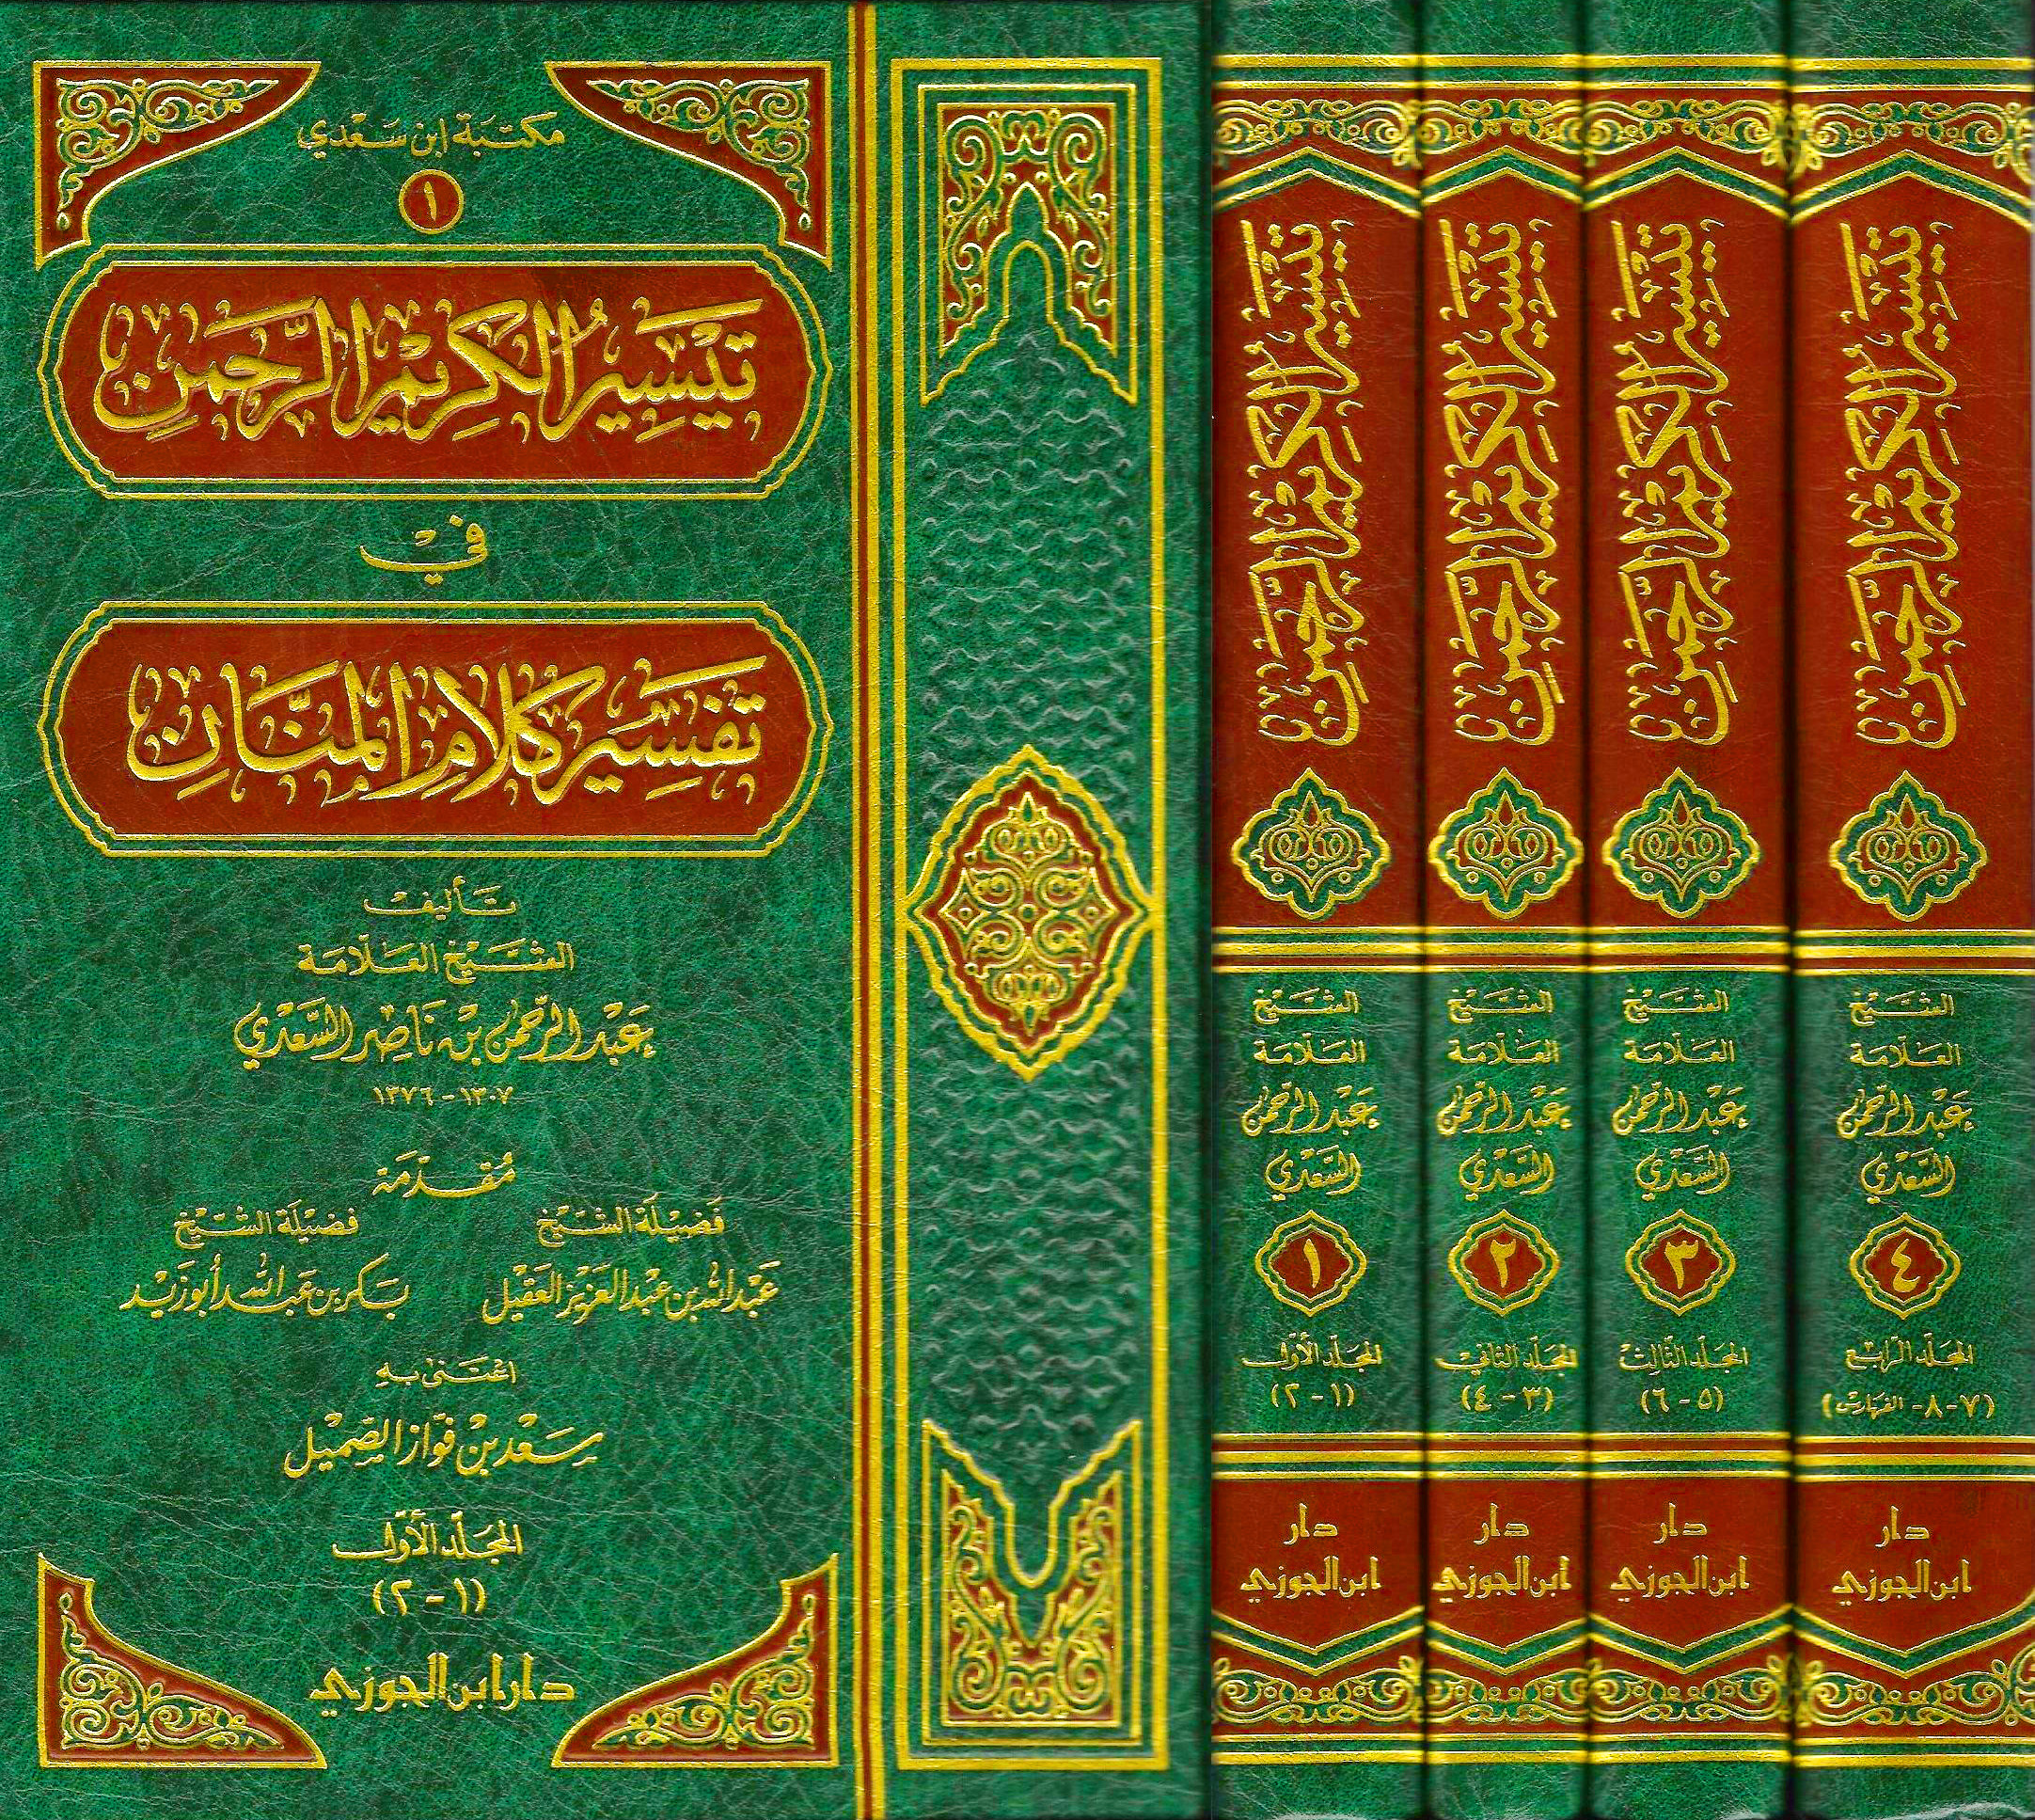 مكتبة ابن سعدي
١
تَيْسِيرُ الكَرِيْمِ الرَّحمٰنِ
في
تَفْسِيرِ كَلامِ المنَّانِ
تأليف
الشَّيْخ العَلّامَة
عَبْد الرَّحمٰن بْن نَاصِر السَّعْدي
١٣٠٧ - ١٣٧٦
مُقدّمَة
فَضِيْلَة الشَّيْخ
عَبْد الله بن عَبْد العَزيْز العَقيْل
فَضِيْلَة الشَّيْخ
بَكر بن عَبد الله أبو زَيد
اعْتَنى بِه
سَعْد بْن فَوّاز الصّمَيْل
المجَلّد الأوّل
(١ - ٢)
دار ابن الجوزي
تيسير الكريم الرحمن
الشَّيْخ
العَلّامَة
عَبْد الرَّحمٰن
السَّعْدي
١
المجَلّد الأوّل
(١ - ٢)
دار
ابن الجوزي
تيسير الكريم الرحمن
الشَّيْخ
العَلّامَة
عَبْد الرَّحمٰن
السَّعْدي
٢
المجَلّد الثاني
(٣ - ٤)
دار
ابن الجوزي
تيسير الكريم الرحمن
الشَّيْخ
العَلّامَة
عَبْد الرَّحمٰن
السَّعْدي
٣
المجَلّد الثّالِث
(٥ - ٦)
دار
ابن الجوزي
تيسير الكريم الرحمن
الشَّيْخ
العَلّامَة
عَبْد الرَّحمٰن
السَّعْدي
٤
المجَلّد الرّابع
(٧ - ٨ - الفهارس)
دار
ابن الجوزي